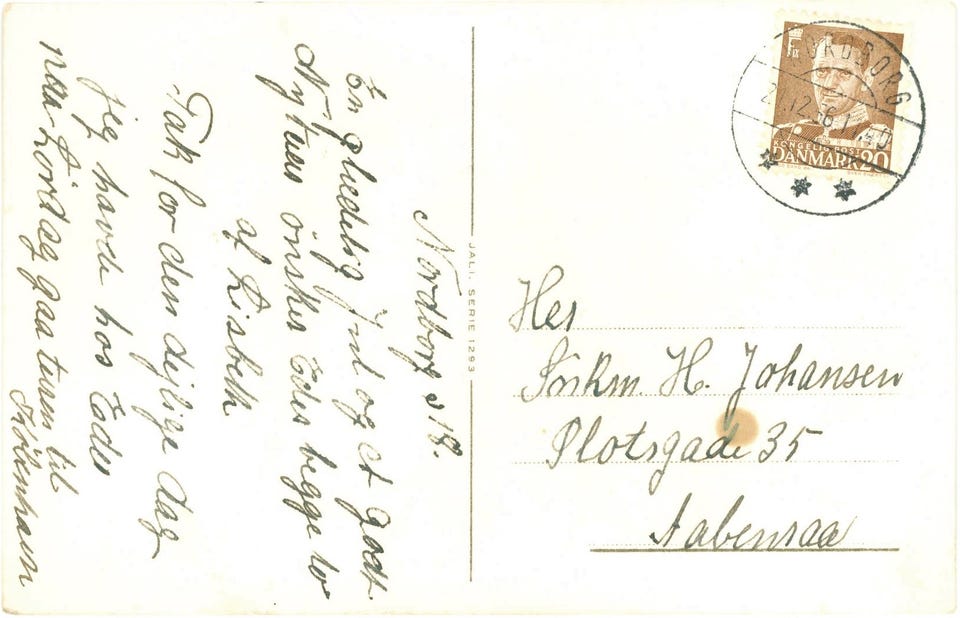 Nordborg d 18.
En glædelig Jul og et godt
Nytaar önsker Eder begge to
af Lisbeth
Tak for den dejlige dag
jeg havde hos Eder
paa Lördag gaa turen til
Köbenhavn
JALI. SERIE 1293
NORDBORG
KONGELIG POST
DANMARK 20
Her
H. Johansen
Slotsgade 35
Aabenraa